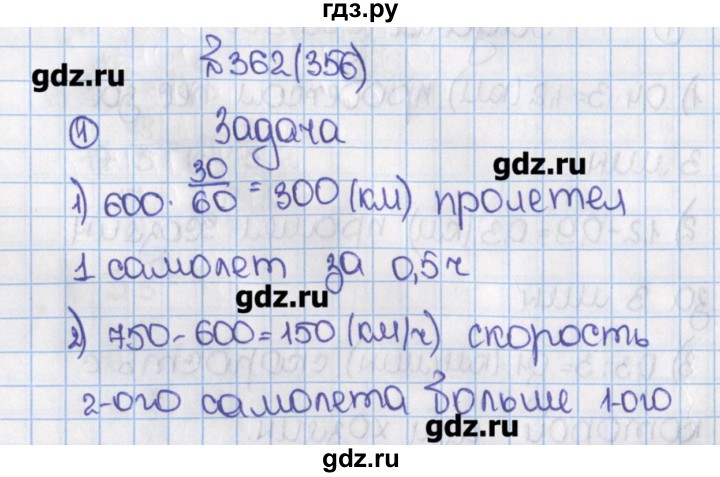 гдз.ру
№362(356)
gdz.ru
1 Задача
gdz.ru
1) 600 · 30/60 = 300 (км) пролетел
1 самолет за 0,5ч
gdz.ru
2) 750-600=150 (км/ч) скорость
2-ого самолета больше 1-ого
gdz.ru
gdz.ru